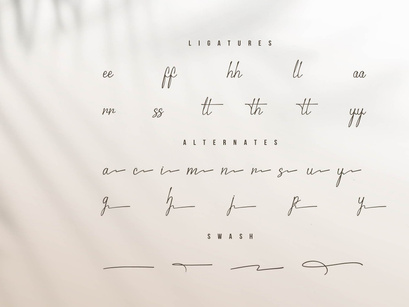 LIGATURES
ee ff hh ll aa
rr ss tt th tt yy
ALTERNATES
a c i m n r s u y
g h j p y
SWASH